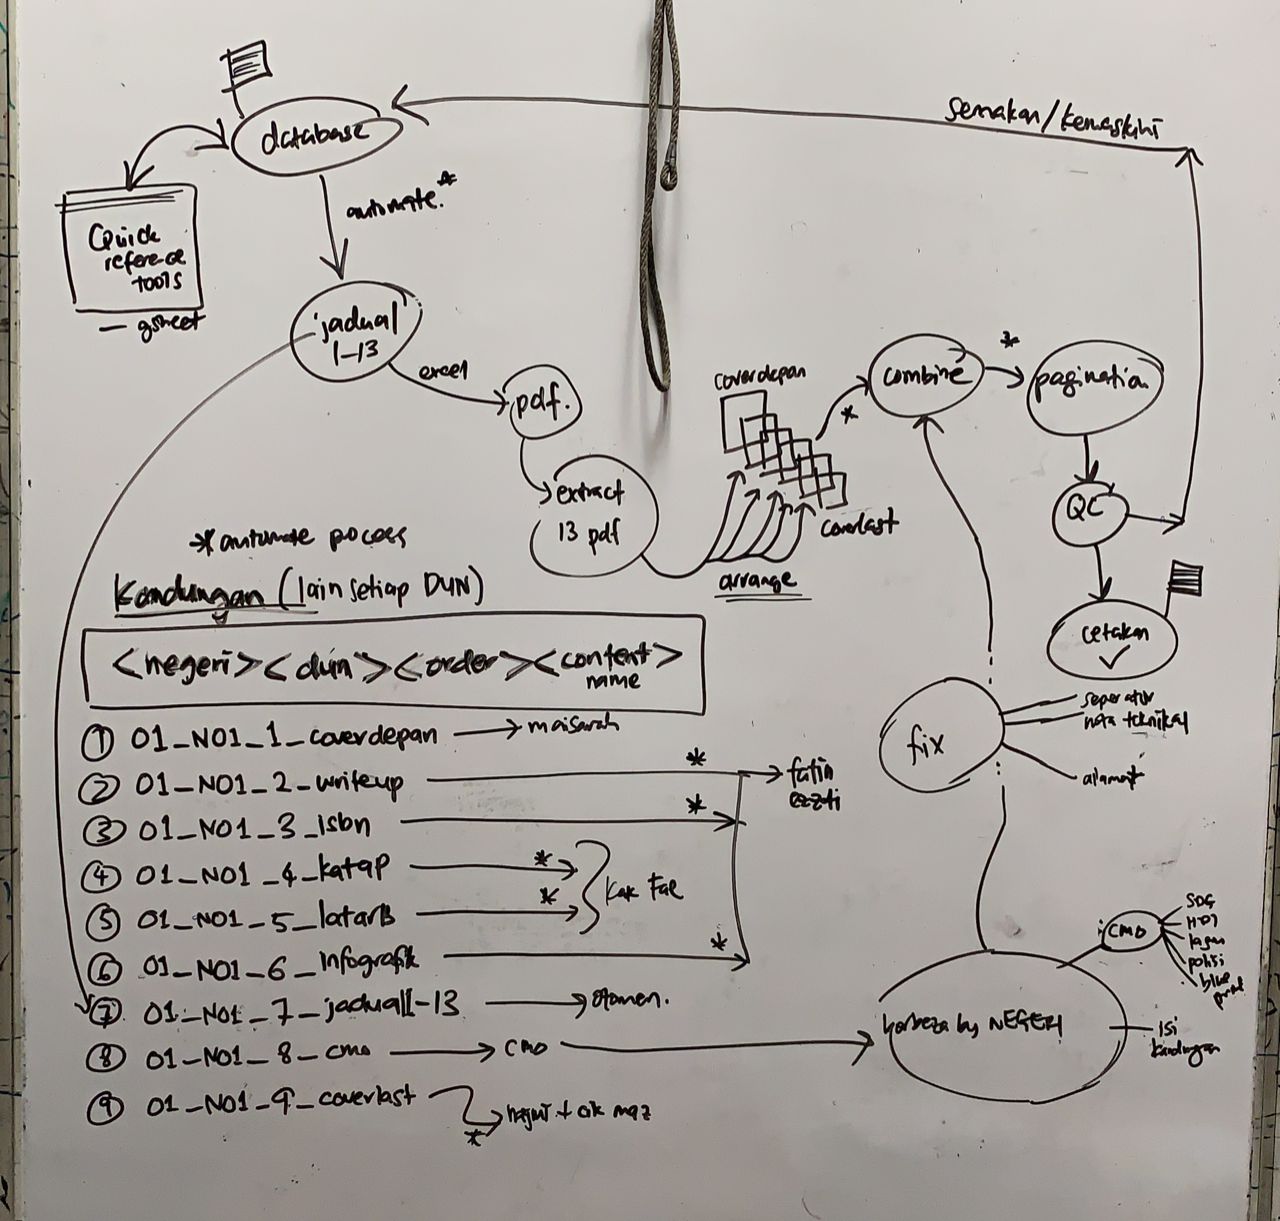 database
semakan/kemaskini
automate.*
Quick
reference
tools
— gsheet
'jadual'
1-13
excel
pdf.
extract
13 pdf
coverdepan
coverlast
arrange
*
combine
*
pagination
QC
cetakan
* automate process
Kandungan (lain setiap DUN)
<negeri><dun><order><content
name>
① 01_N01_1_coverdepan → maisarah
② 01_N01_2_writeup * → fatin
ezzti
③ 01_N01_3_isbn *
④ 01_N01_4_katap *
Kak Fae
⑤ 01_N01_5_latarB *
⑥ 01_N01_6_infografik *
⑦ 01_N01_7_jadual1-13 →
⑧ 01_N01_8_cmo → CMO
⑨ 01_N01_9_coverlast
* → + cik maz
fix
seperator
nota teknikal
by NEGERI
isi
kandungan
CMO
SDG